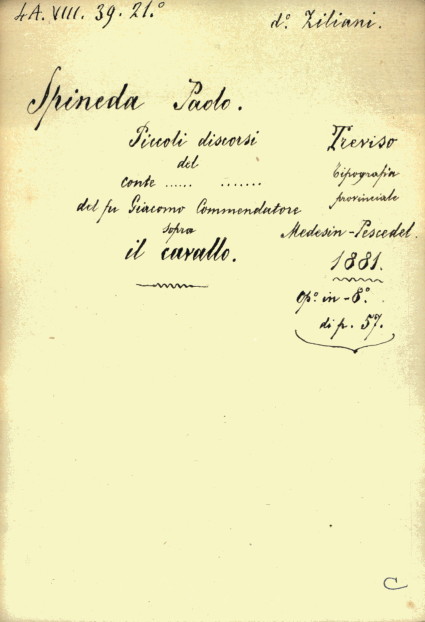 4A. VIII. 39. 21.°
d°. Ziliani.
Spineda Paolo.
Piccoli discorsi
del
conte ...... .......
del fu Giacomo Commendatore
sopra
il cavallo.
Treviso
Tipografia
provinciale
Medesin-Pescedel.
1881.
op°. in-8°.
di p. 57.
C